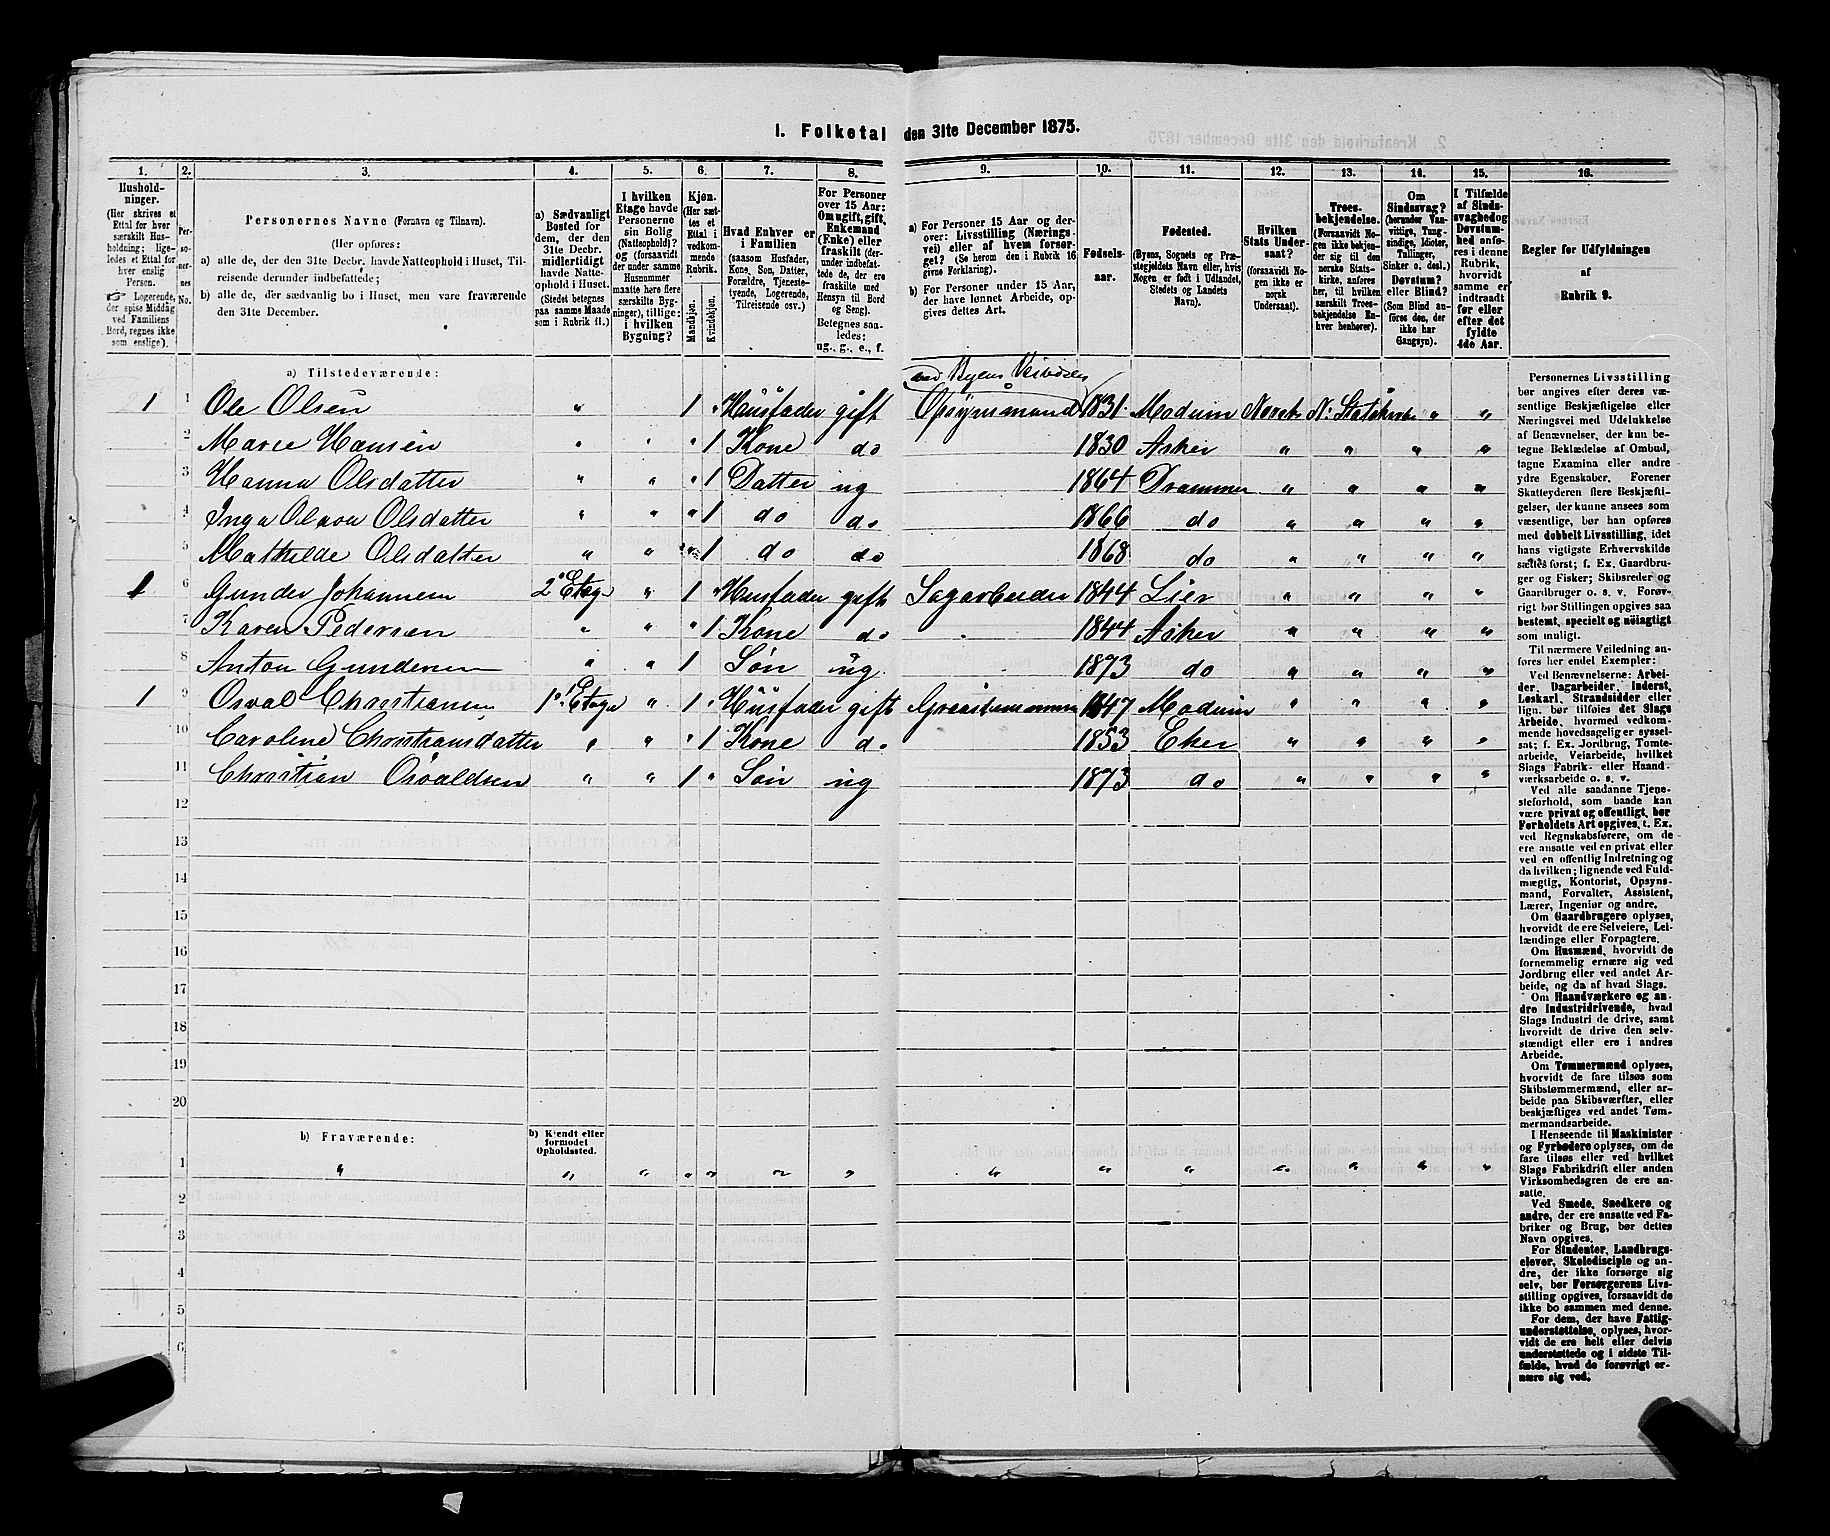 I. Folketal den 31te December 1875.
1. 2. 3. 4. 5. 6. 7. 8. 9. 10. 11. 12. 13. 14. 15. 16.
Hushold-
ninger.
(Her skrives et
Ettal for hver
særskilt Hus-
holdning; lige-
ledes et Ettal for
hver enslig
Person.
☞ Logerende,
der spise Middag
ved Familiens
Bord, regnes ikke
som enslige).
Per-
so-
ner-
nes
No.
Personernes Navne (Fornavn og Tilnavn).
(Her opføres:
a) alle de, der den 31te Decbr. havde Natteophold i Huset, Til-
reisende derunder indbefattede;
b) alle de, der sædvanlig bo i Huset, men vare fraværende
den 31te December.
a) Sædvanligt
Bosted for
dem, der den
31te Decbr.
midlertidigt
havde Natte-
ophold i Huset.
(Stedet betegnes
paa samme Maade
som i Rubrik 11.)
I hvilken
Etage havde
Personerne
sin Bolig
(Natteophold)?
og (forsaavidt
der under samme
Husnummer
maatte høre flere
særskilte Byg-
ninger), tillige:
i hvilken
Bygning?
Kjøn.
(Her sæt-
tes et
Ettal i
vedkom-
mende
Rubrik.
Mandkjøn.
Kvindekjøn.
Hvad Enhver er
i Familien
(saasom Husfader,
Kone, Søn, Datter,
Forældre, Tjeneste-
tyende, Logerende,
Tilreisende osv.)
For Personer
over 15 Aar:
Om ugift, gift,
Enkemand
(Enke) eller
fraskilt (der-
under indbefat-
tede de, der ere
fraskilte med
Hensyn til Bord
og Seng).
Betegnes saa-
ledes:
ug., g., e., f.
a) For Personer 15 Aar og der-
over: Livsstilling (Nærings-
vei) eller af hvem forsør-
get? (Se herom den i Rubrik 16
givne Forklaring).
b) For Personer under 15 Aar,
der have lønnet Arbeide, op-
gives dettes Art.
Fødsels-
aar.
Fødested.
(Byens, Sognets og Præ-
stegjeldets Navn eller, hvis
Nogen er født i Udlandet,
Stedets og Landets
Navn).
Hvilken
Stats Under-
saat?
(forsaavidt No-
gen ikke er
norsk
Undersaat).
Troes-
bekjendelse.
(Forsaavidt No-
gen ikke bekjen-
der sig til den
norske Stats-
kirke, anføres
her, til hvilken
særskilt Troes-
bekjendelse En-
hver henhører).
Om
Sindssvag?
(herunder Van-
vittige, Tung-
sindige, Idioter,
Tullinger,
Sinker o. desl.)
Døvstum?
eller Blind?
(Som Blind an-
føres den, der
ikke har
Gangsyn).
I Tilfælde
af Sinds-
svaghed og
Døvstum-
hed anfø-
res i denne
Rubrik,
hvorvidt
samme er
indtraadt
før eller
efter det
fyldte
4de Aar.
Regler for Udfyldningen
af
Rubrik 9.
a) Tilstedeværende:
ved Byens
1 1 Ole Olsen " 1 " Husfader gift Opsynsmand 1831 Modum Norsk N. Statskirke " "
2 Maree Hansen " " " 1 Kone do 1830 Asker " " " "
3 Hanna Olsdatter " " " 1 Datter ug 1864 Drammen " " " "
4 Inga Olava Olsdatter " " " 1 do do 1866 do " " " "
5 Mathilde Olsdatter " " " 1 do do 1868 do " " " "
1 6 Gunder Johannesen 2 Etage " 1 " Husfader gift Sagarbeider 1844 Lier " " " "
7 Karen Pedersen " " " 1 Kone do 1844 Asker " " " "
8 Anton Gundersen " " 1 Søn ug 1873 do " " " "
1 9 Osval Christiansen 1 Etage " 1 " Husfader gift 1847 Modum " " " "
10 Caroline Christiansdatter " " " 1 Kone do 1853 Eker " " " "
11 Christian Osvaldsen " " 1 " Søn ug 1873 do " " " "
12
13
14
15
16
17
18
19
20
b) Fraværende:
b) Kjendt eller
formodet
Opholdssted.
1 " " " " " " " " " " " " " "
2
3
4
5
6
Personernes Livsstilling
bør angives efter deres væ-
sentlige Beskjæftigelse eller
Næringsvei med Udelukkelse
af Benævnelser, der kun be-
tegne Beklædelse af Ombud,
tagne Examina eller andre
ydre Egenskaber. Forener
Skatteyderen flere Beskjæfti-
gelser, der kunne ansees som
væsentlige, bør han opføres
med dobbelt Livsstilling, idet
hans vigtigste Erhvervskilde
sættes først; f. Ex. Gaardbru-
ger og Fisker; Skibsreder og
Gaardbruger o. s. v. Forøv-
rigt bør Stillingen opgives saa
bestemt, specielt og nøiagtigt
som muligt.
Til nærmere Veiledning an-
føres her endel Exempler:
Ved Benævnelserne: Arbei-
der, Dagarbeider, Inderst,
Løskarl, Strandsidder eller
lign. bør tilføies det Slags
Arbeide, hvormed vedkom-
mende hovedsagelig er syssel-
sat; f. Ex. Jordbrug, Tomte-
arbeide, Veiarbeide, hvilket
Slags Fabrik- eller Haand-
værksarbeide o. s. v.
Ved alle saadanne Tjene-
steforhold, som baade kan
være privat og offentligt, bør
Forholdets Art opgives, t. Ex.
ved Regnskabsførere, om de
ere ansatte ved en privat eller
ved en offentlig Indretning og
da hvilken; lignende ved Fuld-
mægtig, Kontorist, Opsyns-
mand, Forvalter, Assistent,
Lærer, Ingeniør og andre.
Om Gaardbrugere oplyses,
hvorvidt de ere Selveiere, Lei-
lændinge eller Forpagtere.
Om Husmænd, hvorvidt de
fornemmelig ernære sig ved
Jordbrug eller ved andet Ar-
beide, og da af hvad Slags.
Om Haandværkere og an-
dre Industridrivende, hvad
Slags Industri de drive, samt
hvorvidt de drive den selv-
stændigt eller ere i andres
Arbeide.
Om Tømmermænd oplyses,
hvorvidt de fare tilsøs som
Skibstømmermænd, eller ar-
beide paa Skibsværfter, eller
beskjæftiges ved andet Tøm-
mermandsarbeide.
I Henseende til Maskinister
og Fyrbødere oplyses, om de
fare tilsøs eller ved hvilket
Slags Fabrikdrift eller anden
Virksomhedsgren de ere an-
satte.
Ved Smede, Snedkere og
andre, der ere ansatte ved Fa-
briker og Brug, bør dettes
Navn opgives.
For Studenter, Landbrugs-
elever, Skoledisciple og an-
dre, der ikke forsørge sig
selv, bør Forsørgerens Livs-
stilling opgives, forsaavidt de
ikke bo sammen med denne.
For dem, der have Fattig-
understøttelse, oplyses, hvor-
vidt de ere helt eller delvis
understøttede og i sidste Til-
fælde, hvad de forøvrigt er-
nære sig ved.